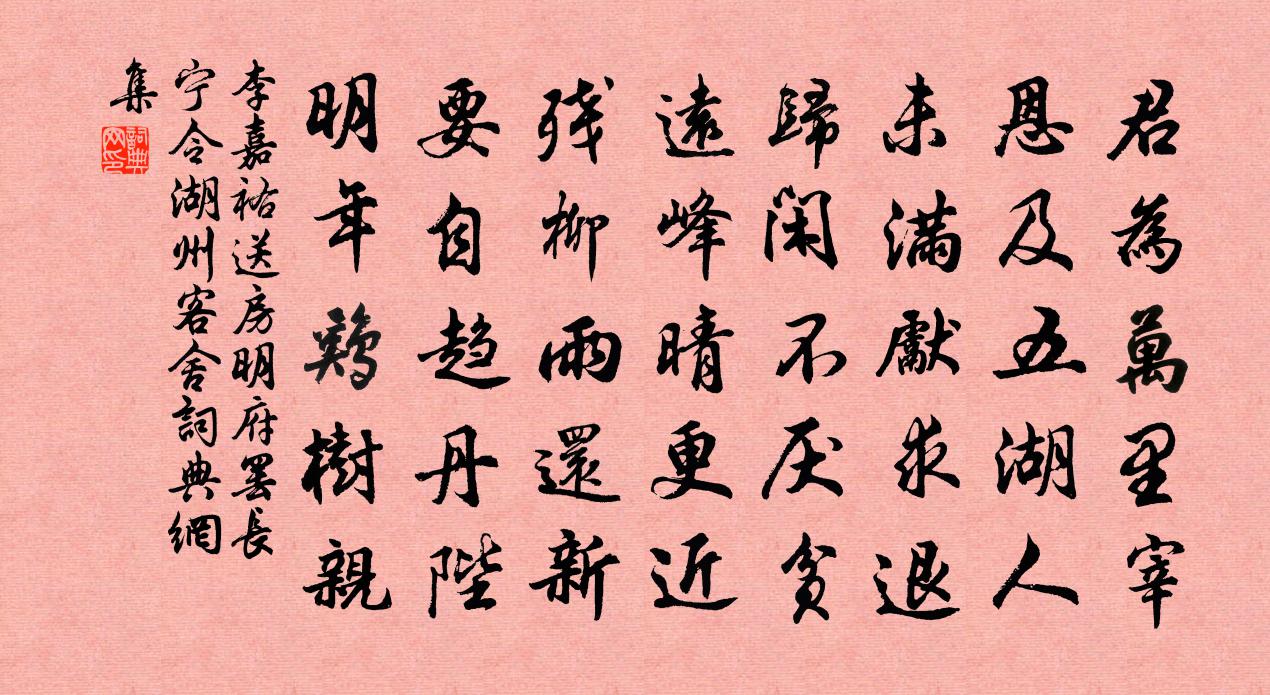 君為萬里宰
恩及五湖人
未滿獻求退
歸閑不厌貧
遠峰晴更近
残柳雨還新
要自趋丹陛
明年鷄樹親
李嘉祐送房明府罢長
宁令湖州客舍詞典網
集
詞典
网印